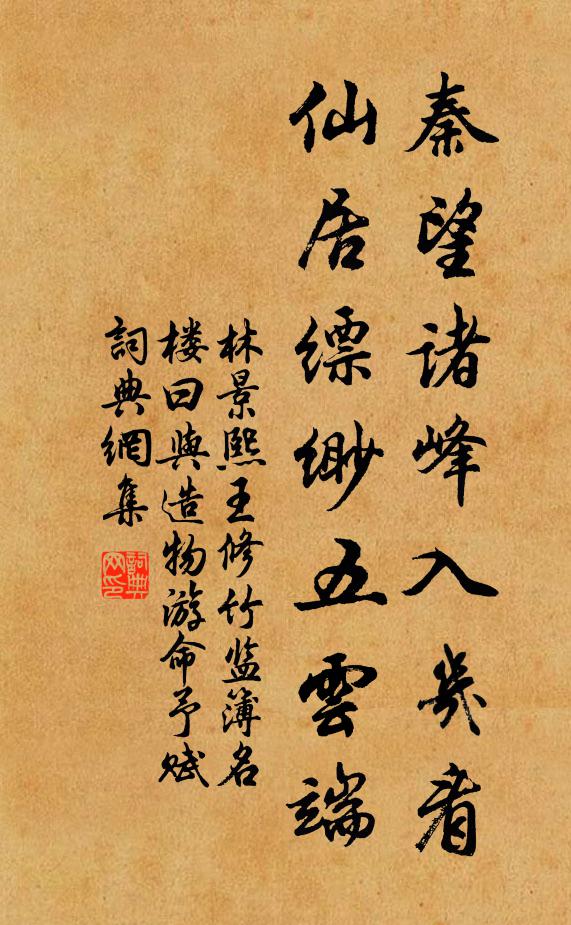 秦望诸峰入幾看
仙居縹緲五雲端
林景熙王修竹监簿名
楼曰與造物游命予赋
詞典網集
詞典网印